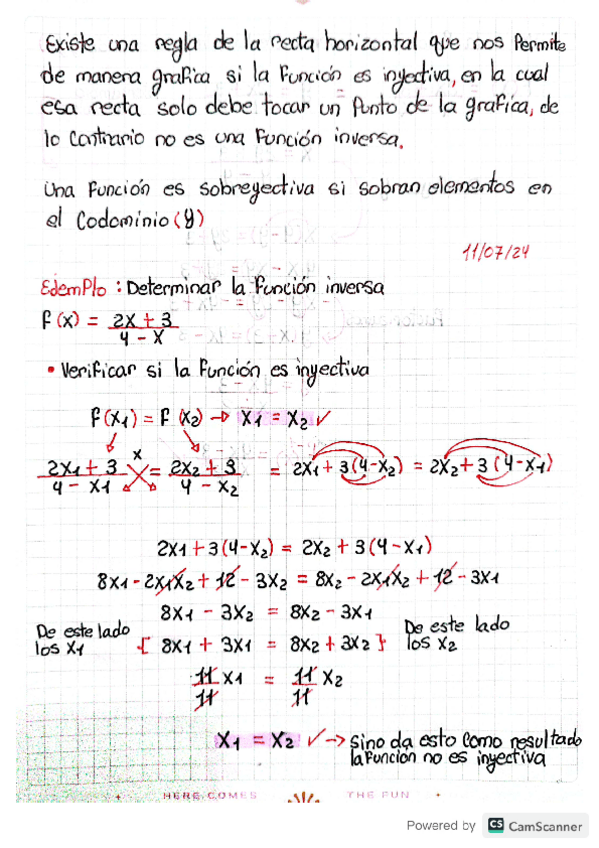 Existe una regla de la recta horizontal que nos Permite
de manera grafica si la Función es inyectiva, en la cual
esa recta solo debe tocar un Punto de la grafica, de
lo Contrario no es una Función inversa.
Una Función es sobreyectiva si sobran elementos en
el Codominio (y)
11/07/24
EJemPlo : Determinar la Función inversa
F(x) = 2x + 3 / 4 - x
• Verificar si la Función es inyectiva
F(x1) = F(x2) → x1 = x2 ✓
2x1 + 3 / 4 - x1 = 2x2 + 3 / 4 - x2 = 2x1 + 3(4-x2) = 2x2 + 3(4-x1)
x
2x1 + 3(4-x2) = 2x2 + 3(4-x1)
8x1 - 2x1x2 + 12 - 3x2 = 8x2 - 2x1x2 + 12 - 3x1
8x1 - 3x2 = 8x2 - 3x1
De este lado
los x1
{ 8x1 + 3x1 = 8x2 + 3x2 }
De este lado
los x2
11/11 x1 = 11/11 x2
x1 = x2 ✓ → Sino da esto Como resultado
la Función no es inyectiva
HERE COMES THE FUN
Powered by CS CamScanner